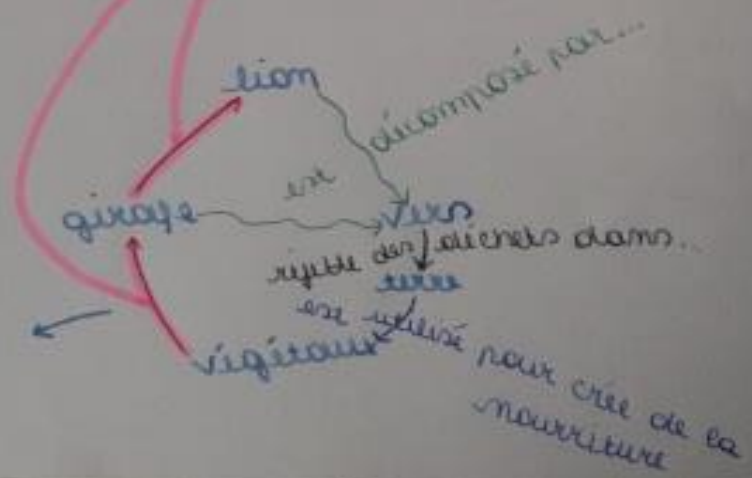 lion
est décomposé par...
girafe
vers
rejette des déchets dans...
terre
est utilisé pour crée de la
nourriture
végétaux